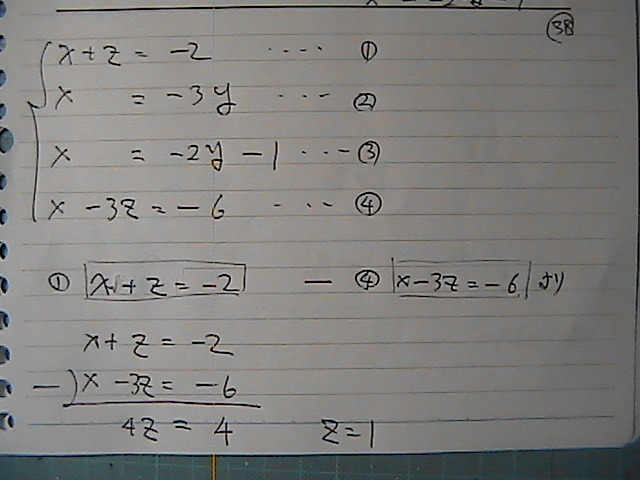 ㊳
x + z = -2 ････ ①
x = -3y ･･･ ②
x = -2y - 1 ･･･ ③
x - 3z = -6 ･･･ ④
① x + z = -2 — ④ x - 3z = -6 より
x + z = -2
—) x - 3z = -6
4z = 4 z = 1